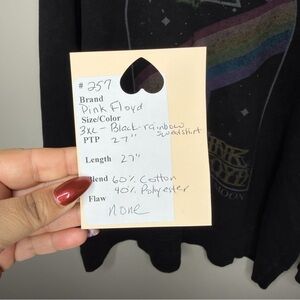 # 257
Brand
Pink Floyd
Size/Color
3XL - Black rainbow
sweatshirt
PTP 27"
Length 27"
Blend 60% Cotton
40% Polyester
Flaw
None
PINK
FLOYD
MOON